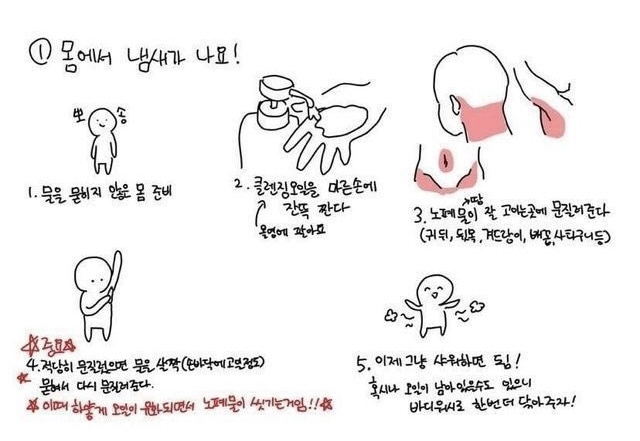 ① 몸에서 냄새가 나요!
뽀 송
1. 물을 묻히지 않은 몸 준비
2. 클렌징오일을 마른손에
잔뜩 짠다
올영에 팔아요
땀
3. 노폐물이 잘 고이는곳에 문질러준다
(귀 뒤, 뒷목, 겨드랑이, 배꼽, 사타구니 등)
☆중요☆
4. 적당히 문질렀으면 물을 살짝 (손바닥에고일정도)
묻혀서 다시 문질러준다.
☆이때 하얗게 오일이 유화되면서 노폐물이 씻기는거임!!☆
5. 이제 그냥 샤워하면 됨!
혹시나 오일이 남아있을수도 있으니
바디워시로 한번 더 닦아주자!